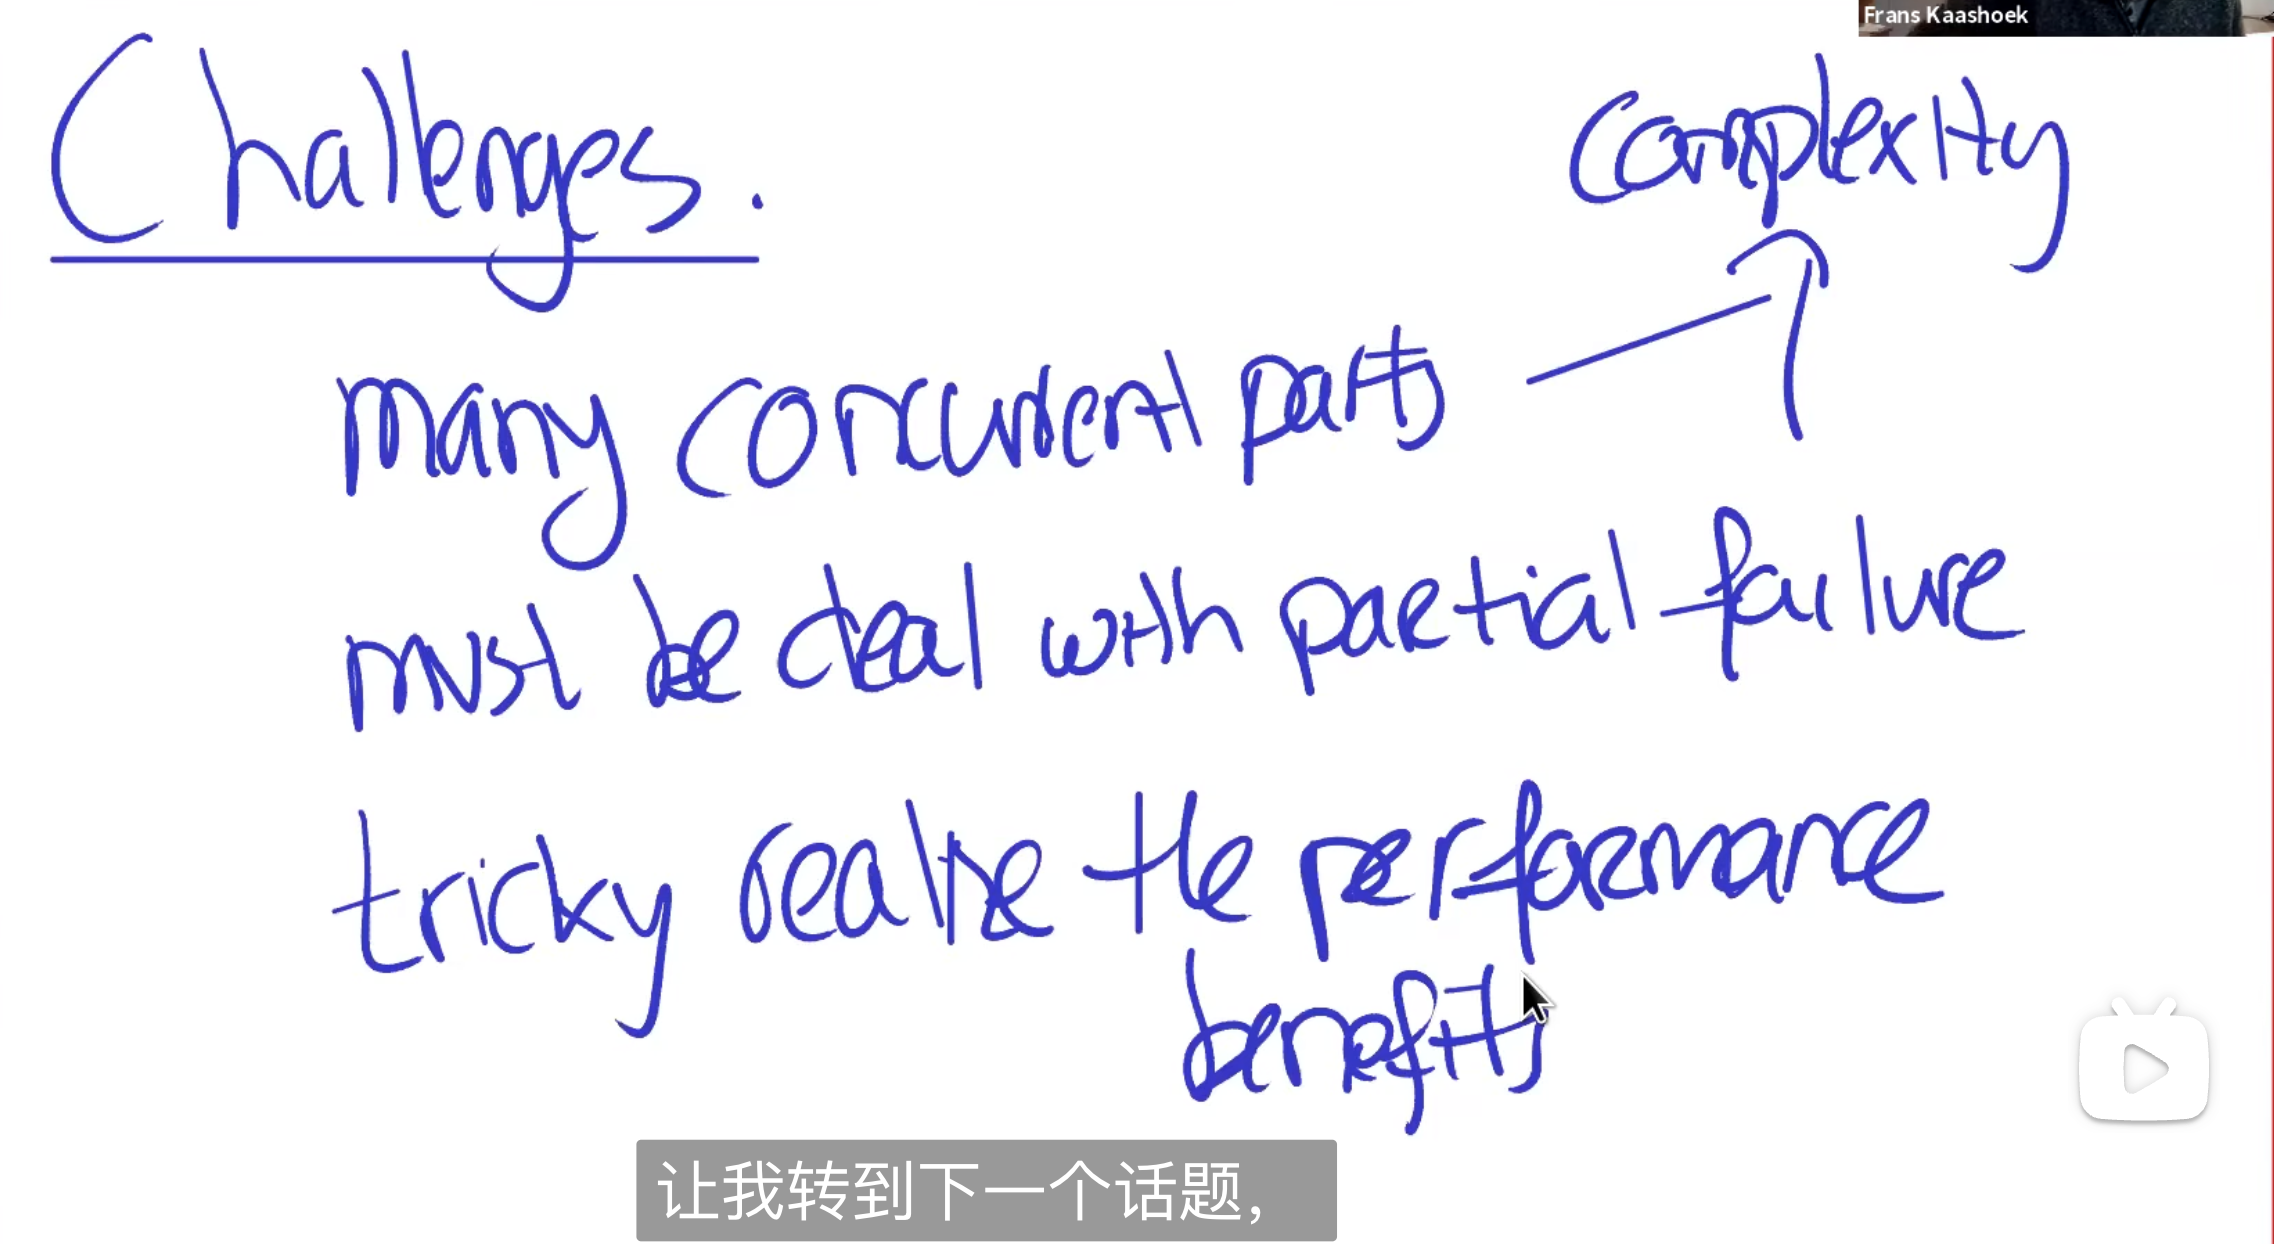 Frans Kaashoek
Challenges.
complexity
many concurrent parts
must be deal with partial failure
tricky realize the performance
benefits
让我转到下一个话题，